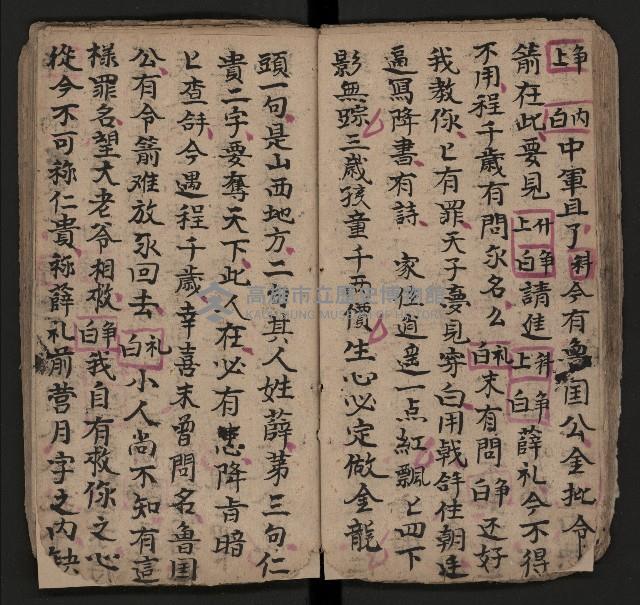 上净
白内中軍且了科今有魯囯公金批令
箭在此要見上廾白净請進上科白净薛礼今不得
不用程千歳有問尔名么白礼末有問白净还好
我教你匕有罪天子夢見穿白用戟舒往朝廷
逼寫降書有詩家住逍遥一点紅飄匕四下
影無踪三歳孩童千両價生心必定做金龍
頭一句是山西地方二句其人姓薛苐三句仁
貴二字要奪天下此人在必有患降旨暗
匕查舒今遇程千歳幸喜末曾問名魯囯
公有令箭难放尔回去白礼小人尚不知有這
様罪名望大老爷相救白净我自有救你之心
從今不可称仁貴称薛礼前营月字之内缺
高雄市立歷史博物館
KAOHSIUNG MUSEUM OF HISTORY